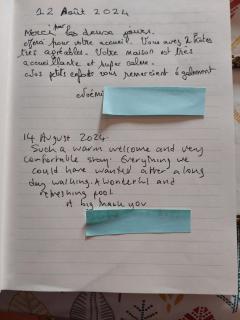 12 Août 2024
Merci pour les deux jours.
pour votre accueil. Vous avez 2 hôtes
très agréables. Votre maison est très
accueillante et super calme.
Nos petits enfants vous remercient également
Noémi
14 August 2024.
Such a warm welcome and very
comfortable stay. Everything we
could have wanted after a long
day walking. A wonderful and
refreshing pool.
A big thank you